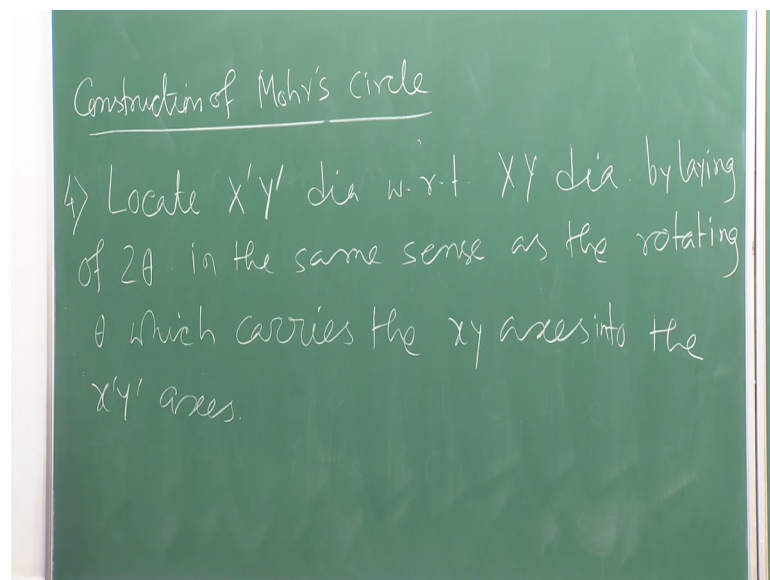 Construction of Mohr's Circle
4) Locate X'Y' dia w.r.t. XY dia. by laying
of 2θ in the same sense as the rotating
θ which carries the xy axes into the
x'y' axes.